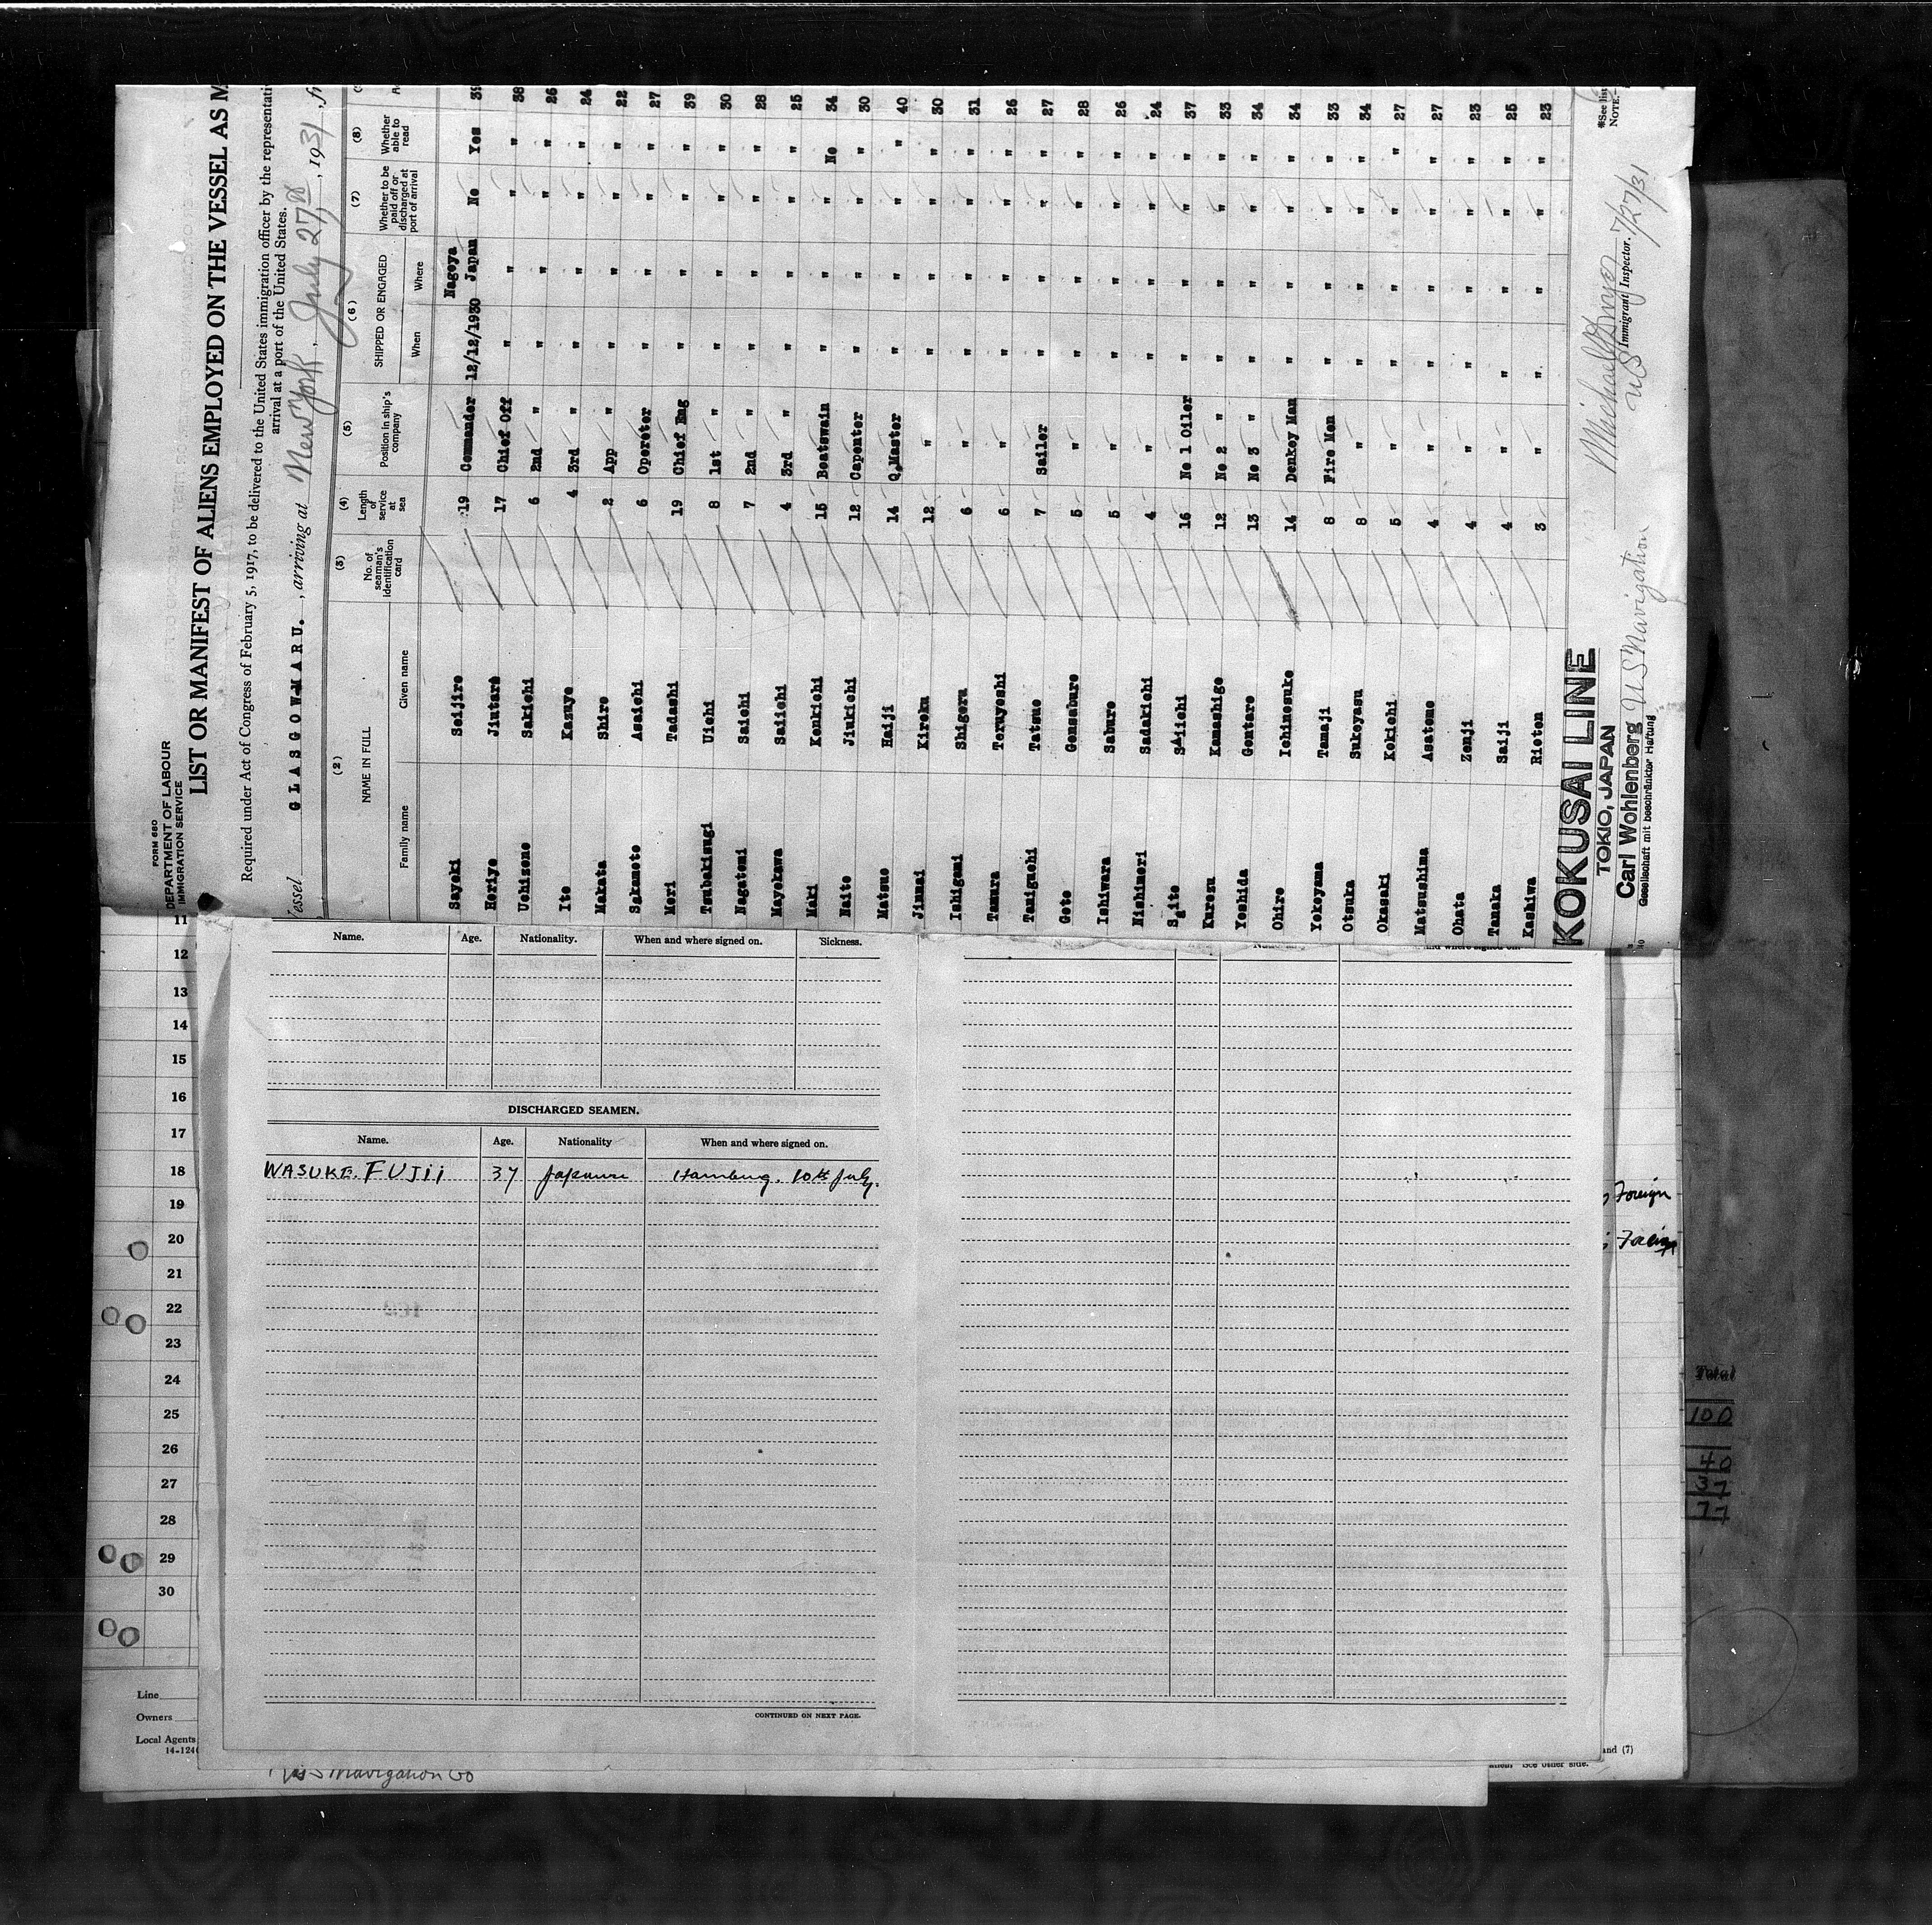 FORM 680
DEPARTMENT OF LABOUR
IMMIGRATION SERVICE
LIST OR MANIFEST OF ALIENS EMPLOYED ON THE VESSEL AS M
Required under Act of Congress of February 5, 1917, to be delivered to the United States immigration officer by the representati
arrival at a port of the United States.
Vessel GLASGOW-MARU. , arriving at New York , July 27th , 1931 , fr
(2) (3) (4) (5) (6) (7) (8)
NAME IN FULL No. of seaman's identification card Length of service at sea Position in ship's company SHIPPED OR ENGAGED Whether to be paid off or discharged at port of arrival Whether able to read
Family name Given name When Where
Nagoya
Sayeki Seijiro 19 Commander 12/12/1930 Japan No Yes 39
Horiye Jiutaro 17 Chief Off " " " " 38
Uchizono Sakichi 6 2nd " " " " " 26
Ito Kazuyo 4 3rd " " " " " 24
Makata Shiro 2 App " " " " " 22
Sakamoto Asaichi 6 Opereter " " " " 27
Mori Tadashi 19 Chief Eng " " " " 39
Tsubakisugi Uichi 8 1st " " " " " 30
Nagatomi Saichi 7 2nd " " " " " 28
Mayekawa Saiichi 4 3rd " " " " " 25
Maki Kenkichi 15 Boatswain " " " No 34
Naito Jiukichi 12 Capenter " " " " 30
Matsuo Haiji 14 Q,Master " " " " 40
Jinnai Kiroku 12 " " " " " 30
Ishigami Shigeru 6 " " " " " 31
Tamura Teruyoshi 6 " " " " " 26
Taniguchi Tatsuo 7 Sailor " " " " 27
Goto Gensaburo 5 " " " " " 28
Ishiwara Saburo 5 " " " " " 26
Nishimori Sadakichi 4 " " " " " 24
Saito Saiichi 16 No 1 Oiler " " " " 37
Kuresu Kamashige 12 No 2 " " " " " 33
Yoshida Gentaro 13 No 3 " " " " " 34
Ohiro Ichinosuke 14 Denkey Man " " " " 34
Yokoyama Tamaji 8 Fire Man " " " " 33
Otsuka Sukeyasu 8 " " " " " 34
Okasaki Kokichi 5 " " " " " 27
Matsushima Asatomo 4 " " " " " 27
Ohata Zenji 4 " " " " " 23
Tanaka Saiji 4 " " " " " 25
Kashiwa Rieton 3 " " " " " 23
KOKUSAI LINE
TOKIO, JAPAN
Carl Wohlenberg
Gesellschaft mit beschränkter Haftung
U S Navigation
US Immigrant Inspector. 7/27/31
*See list
NOTE.—
Name. Age. Nationality. When and where signed on. Sickness.
DISCHARGED SEAMEN.
Name. Age. Nationality When and where signed on.
WASUKE. FUJII 37 Japanese Hamburg. 10th July.
CONTINUED ON NEXT PAGE.
11
12
13
14
15
16
17
18
19
20
21
22
23
24
25
26
27
28
29
30
Line
Owners
Local Agents
14-124
Foreign
Foreign
Total
100
40
37
77
and (7)
See other side.
U S Navigation Co